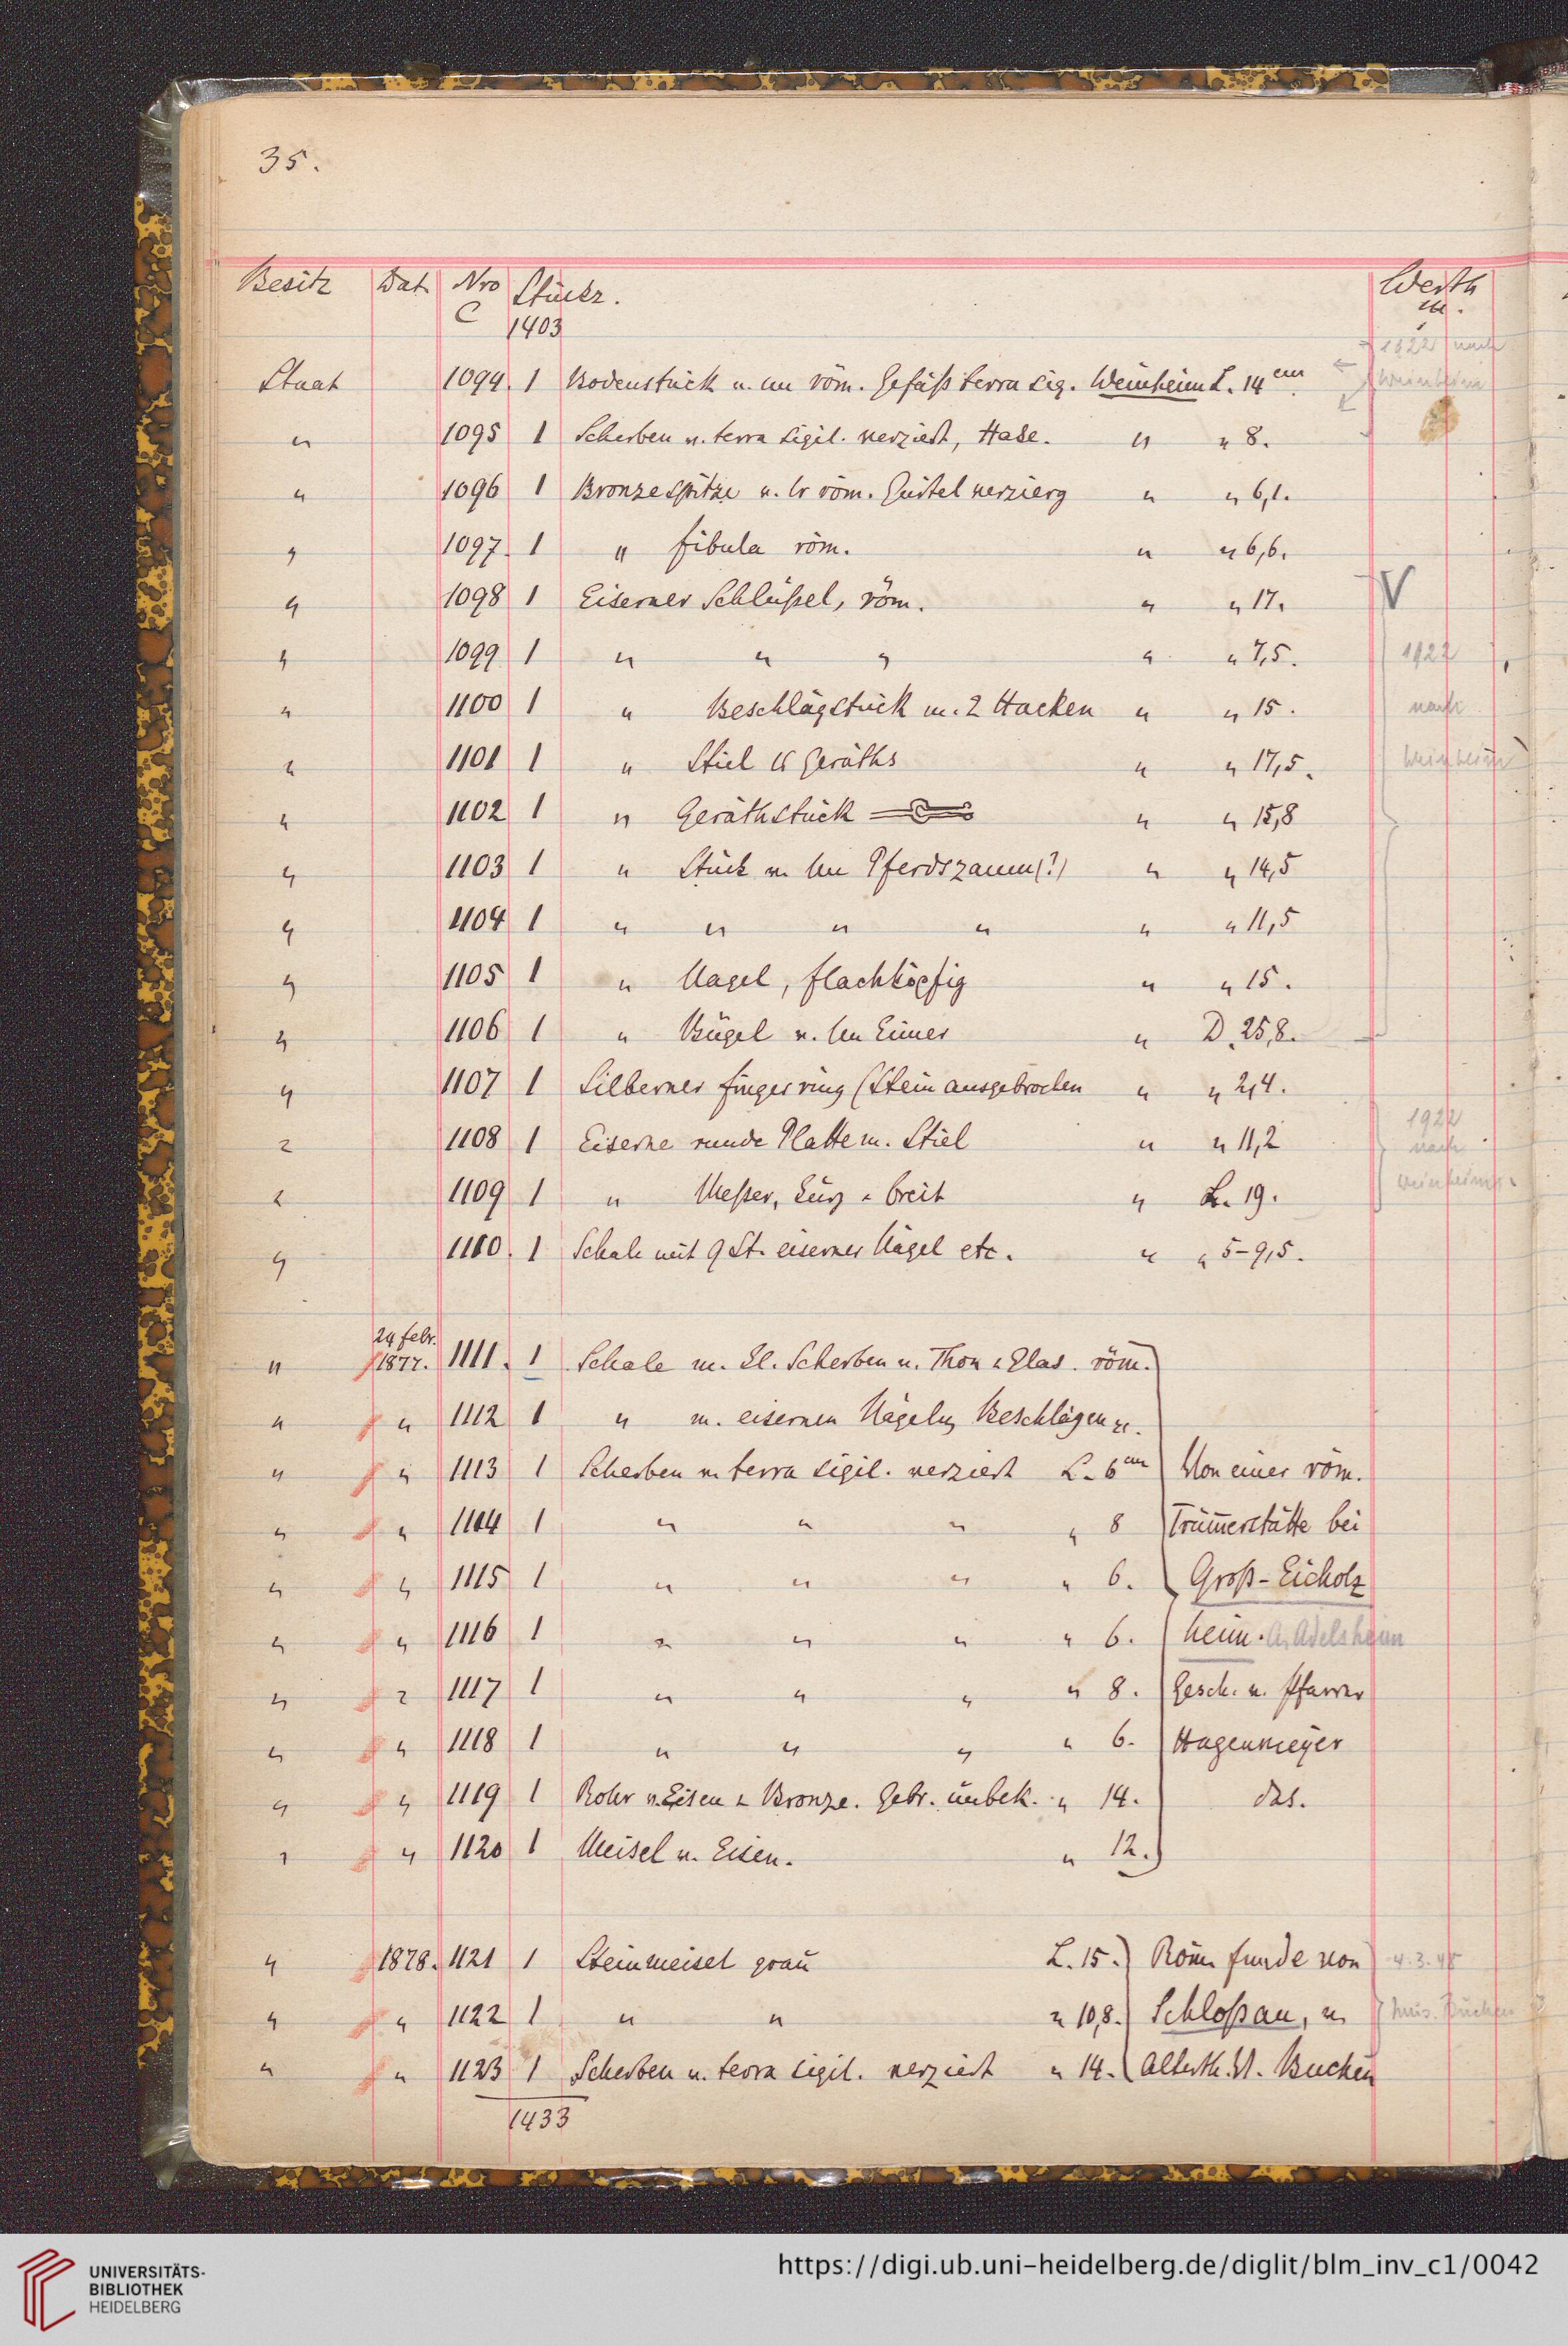 35.
Besitz Dat. Nro C Stückz. Werth M.
1403
1922 nach
Staat 1094. 1 Bodenstück v. ein röm. Gefäß terra sig. Weinheim L. 14 cm. Weinheim
" 1095 1 Scherben v. terra sigil. verziert, Hase. " " 8.
" 1096 1 Bronzespitze v. er röm. Gürtelverzierg " " 6,1.
" 1097. 1 " fibula röm. " " 6,6.
" 1098 1 Eiserner Schlüßel, röm. " " 17. V
" 1099 1 " " " " " 7,5. 1922
" 1100 1 " Beschlägstück m. 2 Hacken " " 15. nach
" 1101 1 " Stiel es Geräths " " 17,5. Weinheim
" 1102 1 " Geräthstück " " 15,8
" 1103 1 " Stück v. em Pferdszaum(?) " " 14,5
" 1104 1 " " " " " " 11,5
" 1105 1 " Nagel, flachköpfig " " 15.
" 1106 1 " Bügel v. em Eimer " D. 25,8.
" 1107 1 Silberner fingerring (Stein ausgebrochen " " 2,4.
" 1108 1 Eiserne runde Platte m. Stiel " " 11,2 1922 nach
" 1109 1 " Meßer, kurz & breit " L. 19. Weinheim.
" 1110. 1 Schale mit 9 St. eiserner Nägel etc. " " 5-9,5.
" 24 febr. 1877. 1111. 1 Schale m. kl. Scherben v. Thon & Glas. röm.
" " 1112 1 " m. eisernen Nägeln, Beschlägen etc.
" " 1113 1 Scherben v. terra sigil. verziert L. 6 cm Von einer röm.
" " 1114 1 " " " " 8 Trümerstätte bei
" " 1115 1 " " " " 6. Groß-Eicholz
" " 1116 1 " " " " 6. heim. A. Adelsheim
" " 1117 1 " " " " 8. Gesch. v. Pfarrer
" " 1118 1 " " " " 6. Hagenmeyer
" " 1119 1 Rohr v. Eisen & Bronze. Gebr. unbek. " 14. das.
" " 1120 1 Meisel v. Eisen. " 12.
" 1878. 1121 1 Steinmeisel grau L. 15. Röm. funde von 4.3.48
" " 1122 1 " " " 10,8. Schloßau, v. Mus. Buchen
" " 1123 1 Scherben v. terra sigil. verziert " 14. Alterth. V. Buchen
1433
UNIVERSITÄTS-
BIBLIOTHEK
HEIDELBERG
https://digi.ub.uni-heidelberg.de/diglit/blm_inv_c1/0042